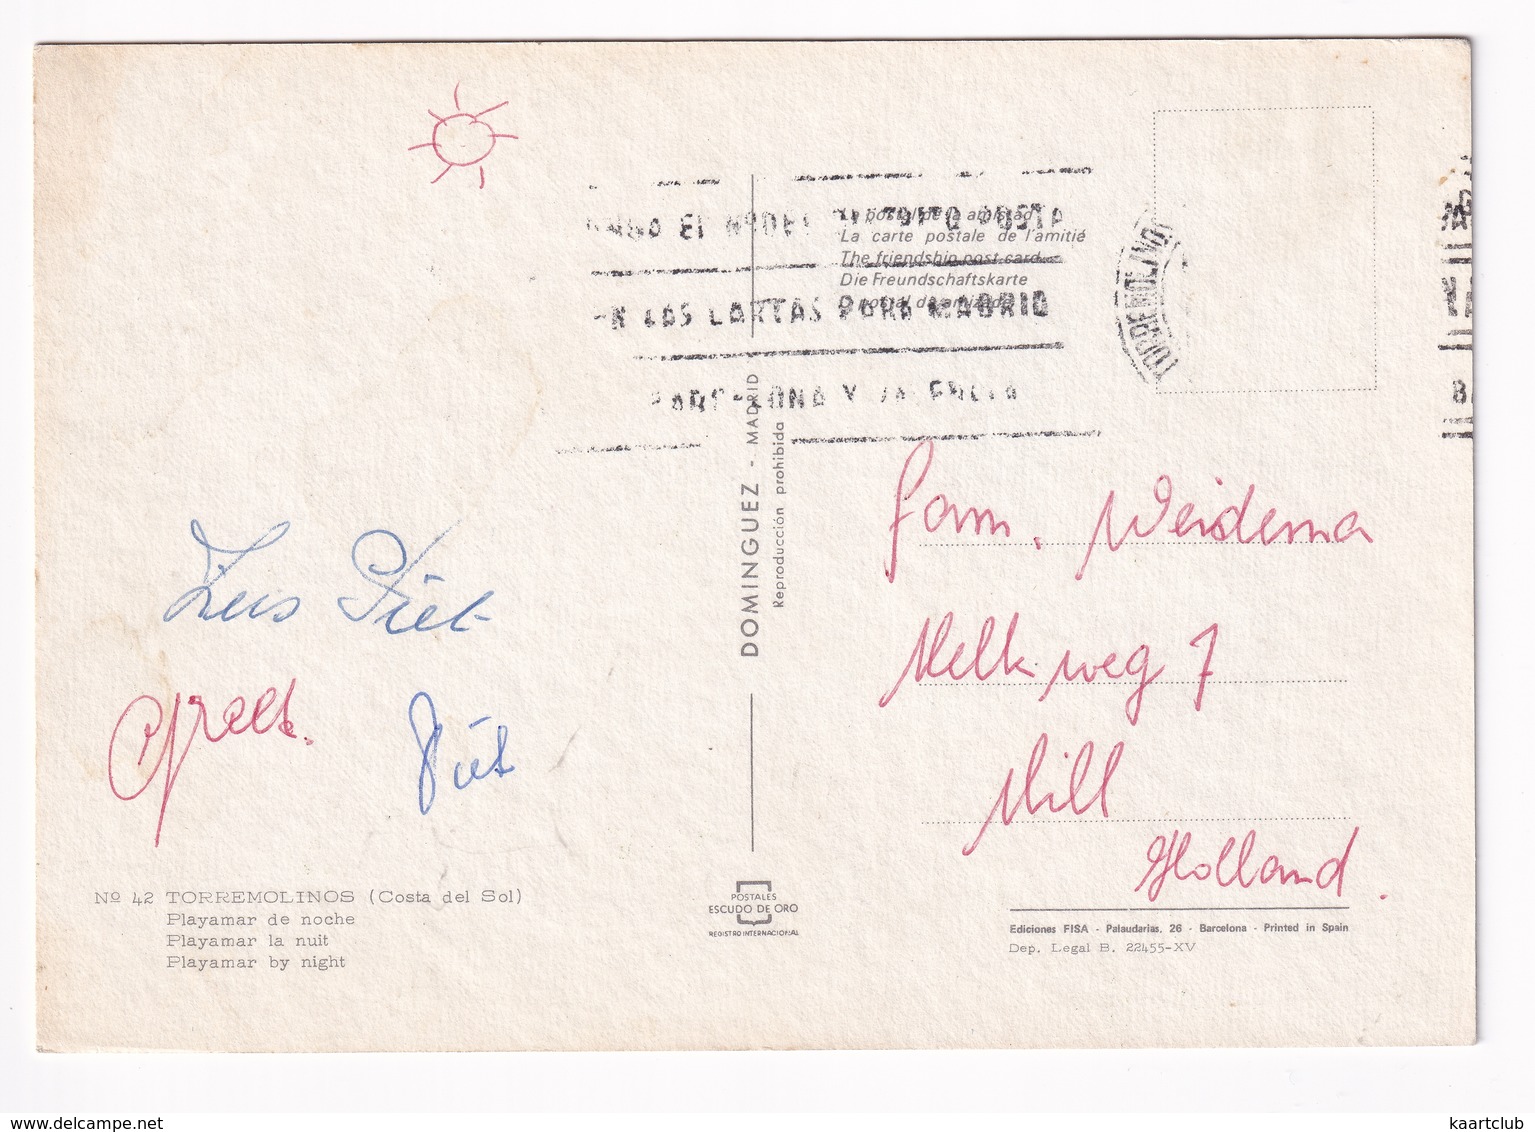 La postal de la amistad
La carte postale de l'amitié
The friendship post card
Die Freundschaftskarte
EN LAS CARTAS PARA MADRID
BARCELONA Y VALENCIA
TORREMOLINOS
DOMINGUEZ - MADRID
Reproducción prohibida
Fam. Weidema
Melkweg 7
Mill
Holland.
Piet
Nº 42 TORREMOLINOS (Costa del Sol)
Playamar de noche
Playamar la nuit
Playamar by night
POSTALES
ESCUDO DE ORO
REGISTRO INTERNACIONAL
Ediciones FISA - Palaudarias, 26 - Barcelona - Printed in Spain
Dep. Legal B. 22455-XV
kaartclub